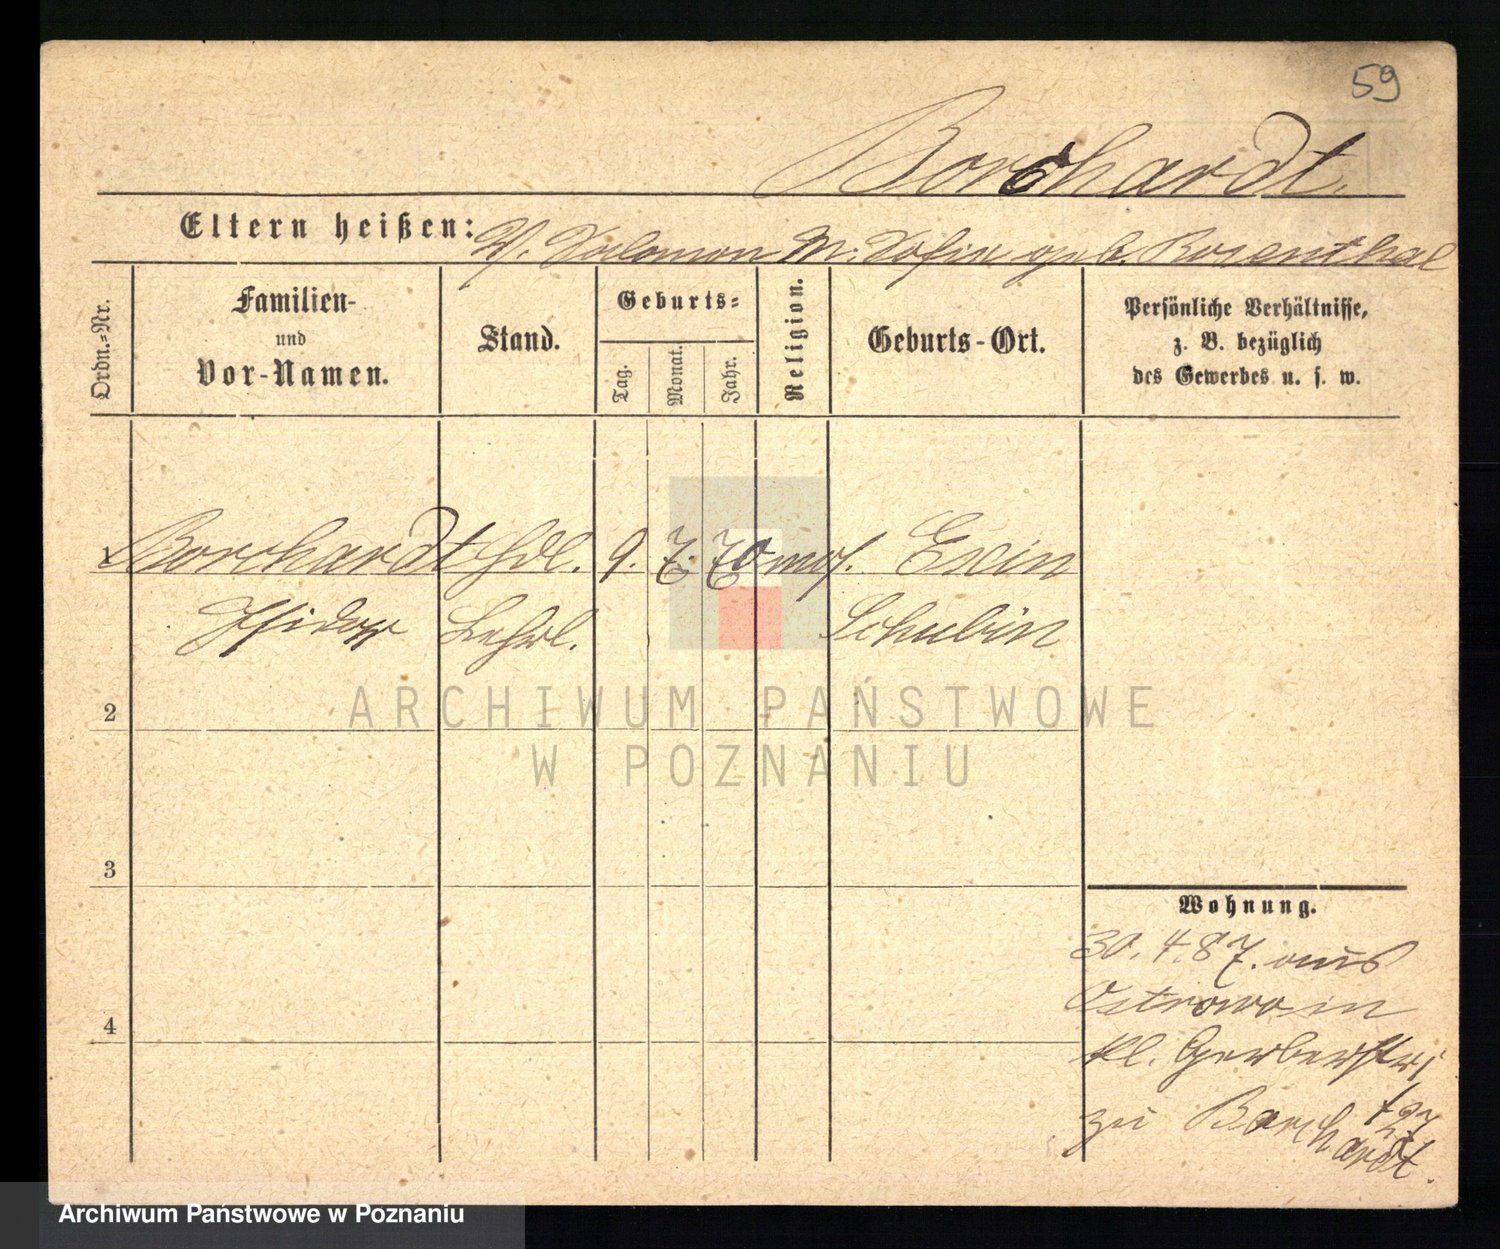 59
Borchardt.
Eltern heißen: V. Salomon M. Sofie geb. Rosenthal
Ordn.-Nr.
Familien-
und
Vor-Namen.
Stand.
Geburts-
Tag.
Monat.
Jahr.
Religion.
Geburts-Ort.
Persönliche Verhältnisse,
z. B. bezüglich
des Gewerbes u. s. w.
1 Borchardt Hdl. 9. 7. 70 mos. Exin
Isidor Lehrl. Schubin
2
3
4
Wohnung.
30. 4. 87. aus
Ostrowo in
kl. Gerberstr
zu Borchardt.
ARCHIWUM PAŃSTWOWE
W POZNANIU
Archiwum Państwowe w Poznaniu